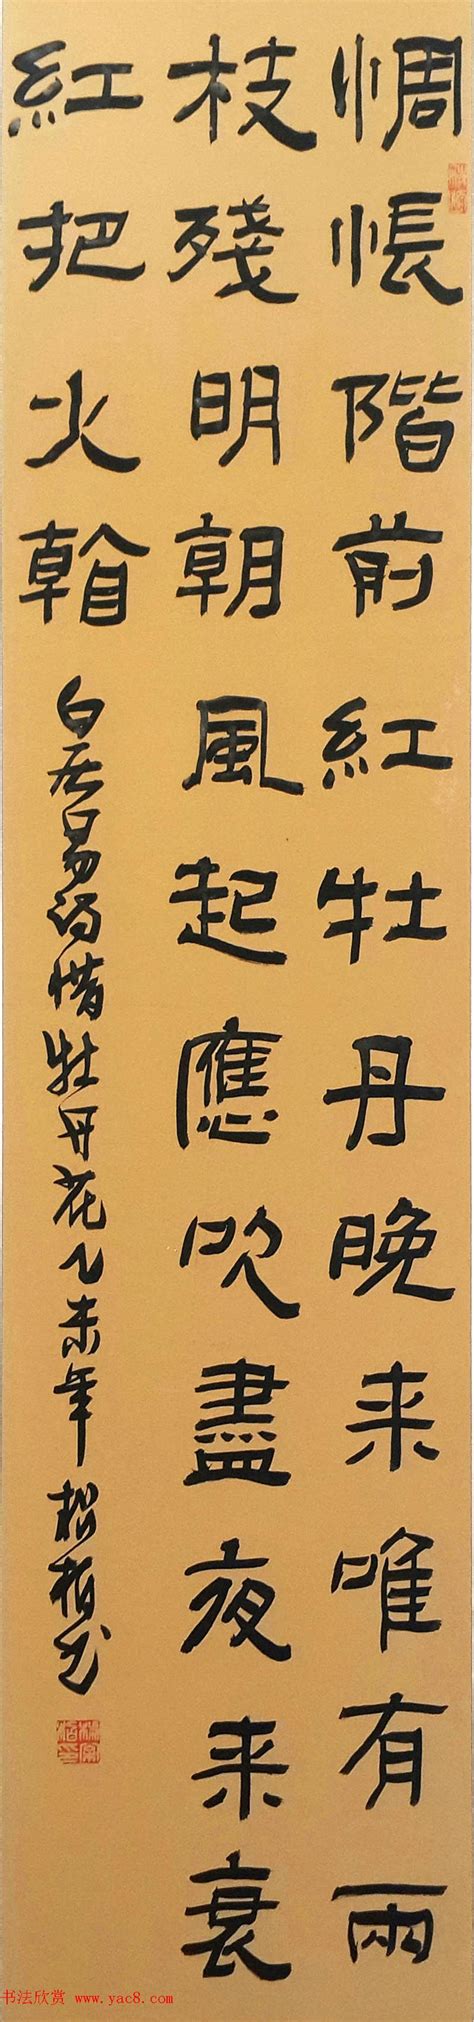 惆悵階前紅牡丹晚来唯有兩
枝殘明朝風起應吹盡夜来衰
紅把火看
白居易诗惜牡丹花乙未年松柏书
书法欣赏 www.yac8.com